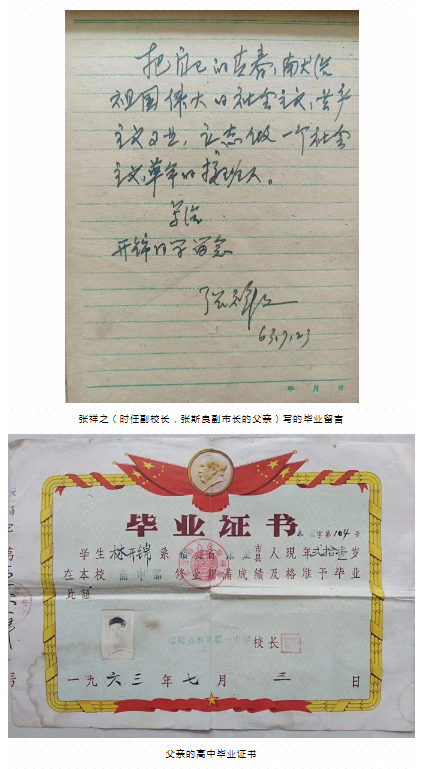 把自己的青春,献给
祖国伟大的社会主义、共产
主义事业,立志做一个社会
主义革命的接班人。
写给
开锦同学留念
张祥之
63.7.23
年 月 日
张祥之(时任副校长,张斯良副市长的父亲)写的毕业留言
毕业证书
字第104号
学生林开锦系福建省 市县人现年贰拾壹岁
在本校高中部修业期满成绩及格准予毕业
此证
第一中学 校长
一九六三年七月三日
父亲的高中毕业证书